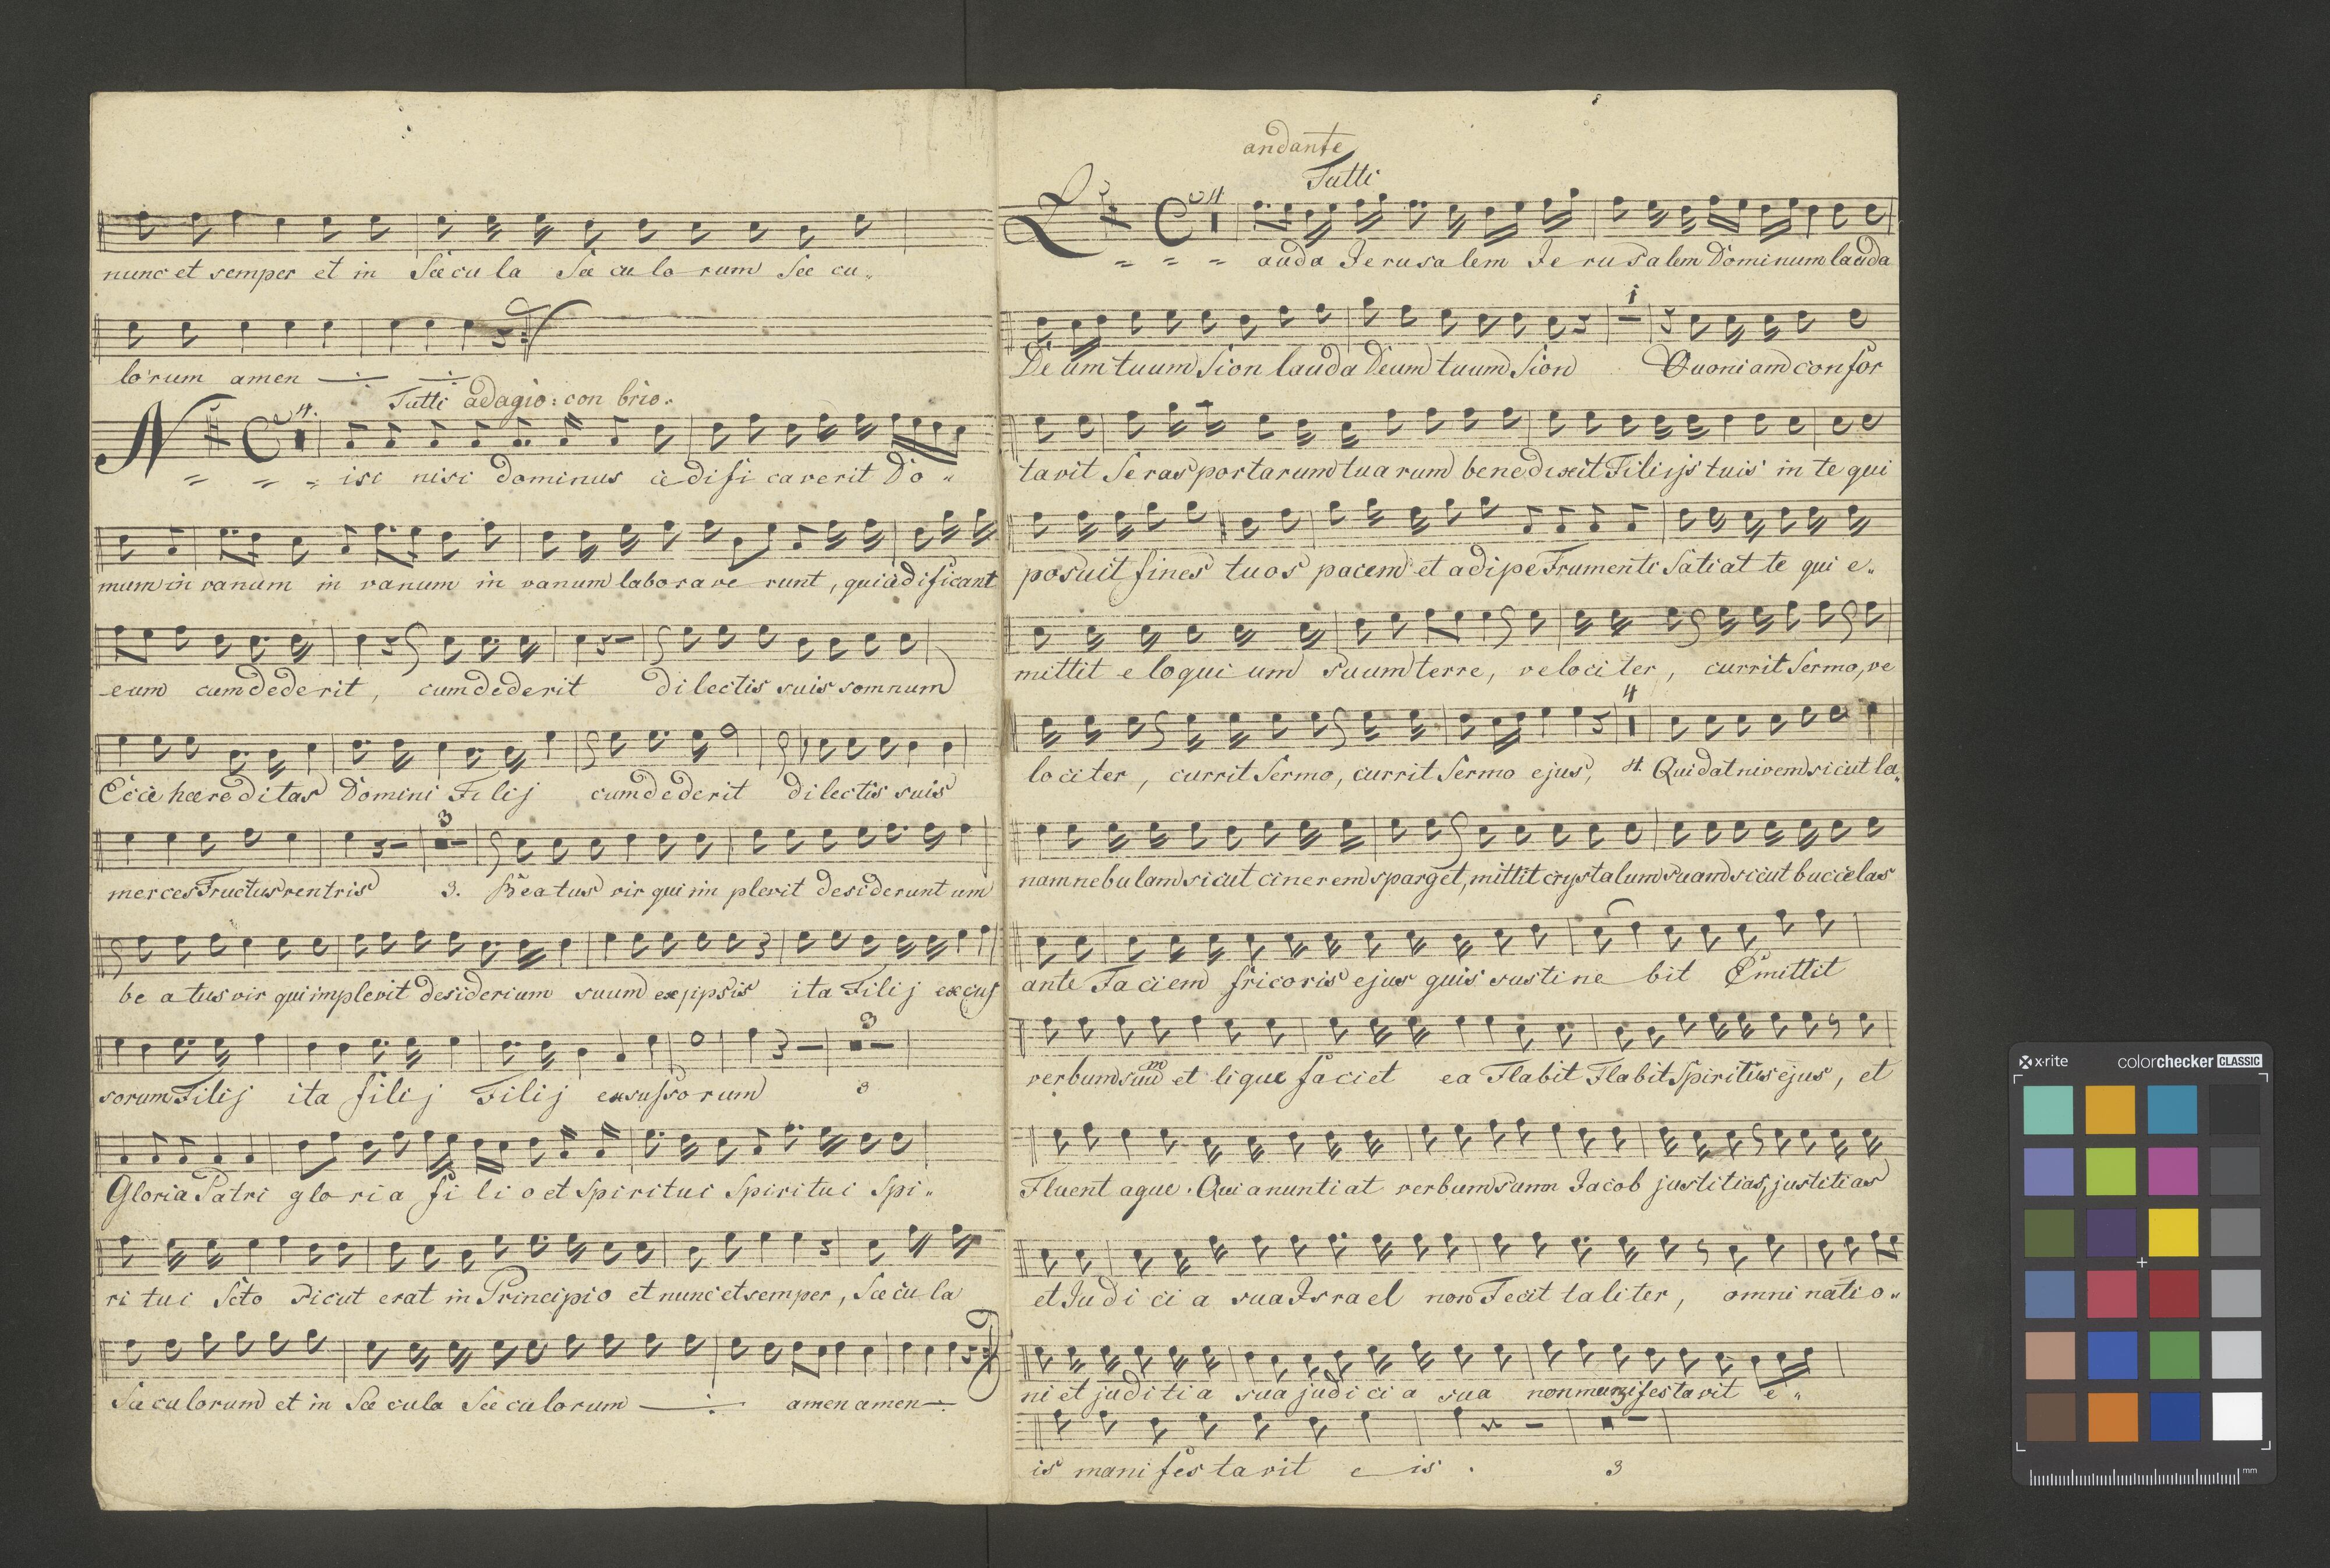 nunc et semper et in Sæcu la Sæ cu lo rum Sæ cu„
lo rum amen
Tutti adagio: con brio.
4.
N = = = isi nisi dominus ædifi caverit Do„
mum in vanum in vanum in vanum laborave runt, qui ædificant
eum cum dederit, cum dederit dilectis suis somnum
Ecce hæreditas Domini Filij cum dederit dilectis suis
3
merces Fructus ventris 3. Beatus vir qui im plevit desiderunt um
be a tus vir qui implevit desiderium suum ex ippsis ita Filij excus
3
sorum Filij ita filij Filij exsussorum 3
Gloria Patri glo ri a fi li o et Spiritui Spiritui Spi„
ri tui Scto Sicut erat in Principio et nunc et semper, Sæcu la
Sæ culorum et in Sæ cula Sæ culorum amen amen
andante
Tutti
4
L = = = auda Jerusa lem Je ru Salem Dominum lauda
1
De um tuum Sion lauda Deum tuum Sion Quoniam confor
tavit Seras portarum tua rum benedixit Filijs tuis in te qui
posuit fines tuos pacem et adipe Frumenti Satiat te qui e„
mittit e loqui um suum terre, velociter, currit Sermo, ve
4
lociter, currit Sermo, currit Sermo ejus, 4. Qui dat nivem sicut la„
nam nebulam sicut cinerem sparget, mittit crystalum suam sicut buccelas
ante Faciem fricoris ejus quis sustine bit Emittit
verbum suu m et lique faciet ea Flabit Flabit Spiritus ejus, et
Fluent aque. Qui anuntiat verbum suum Jacob justitias, justitias
et Judi ci a sua Israel non Fecit taliter, omni natio„
ni et juditi a sua judi ci a sua non manifestavit e„
is mani fes tavit e is. 3
x-rite colorchecker CLASSIC
mm